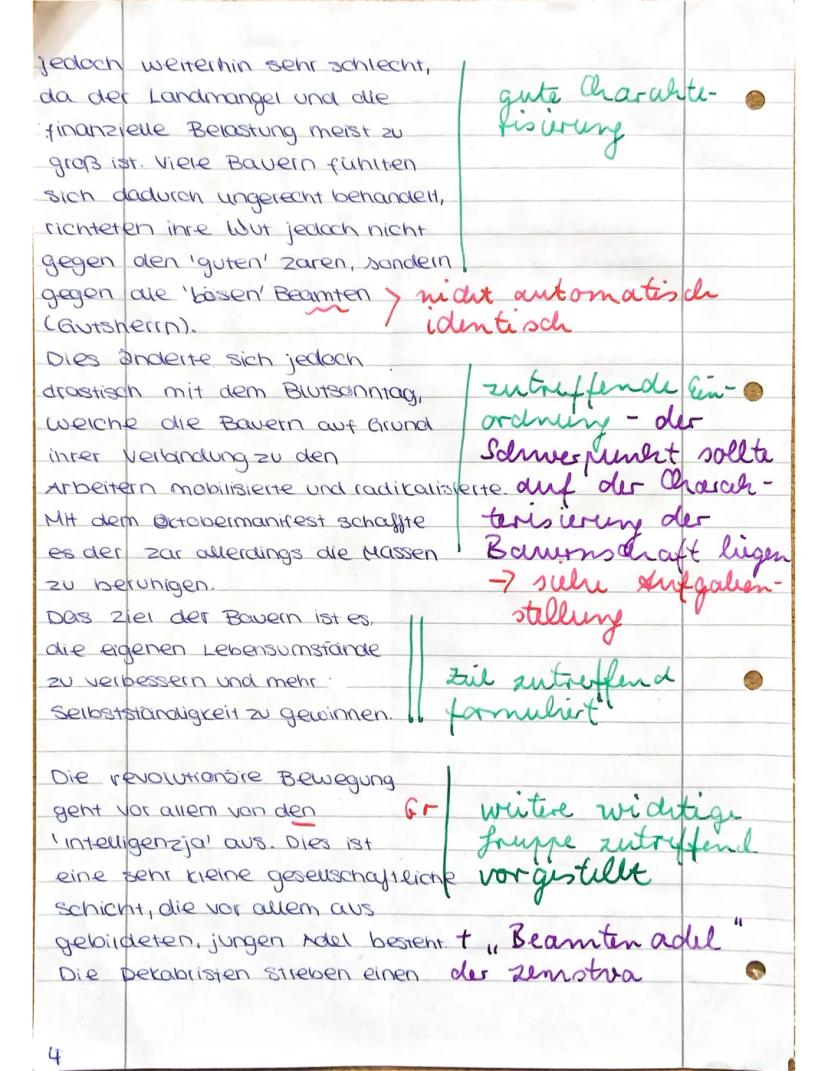 jedoch weiterhin sehr schlecht,
da der Landmangel und die
finanzielle Belastung meist zu
groß ist. Viele Bauern fühlten
sich dadurch ungerecht behandelt,
richteten ihre Wut jedoch nicht
gegen den 'guten' Zaren, sondern
gegen die 'bösen' Beamten
(Gutsherrn).
gute Charakte-
risierung
> nicht automatisch
identisch
Dies änderte sich jedoch
drastisch mit dem Blutsonntag,
welche die Bauern auf Grund
ihrer Verbindung zu den
Arbeitern mobilisierte und radikalisierte.
Mit dem Oktobermanifest schaffte
es der Zar allerdings die Massen
zu beruhigen.
zutreffende Ein-
ordnung - der
Schwerpunkt sollte
auf der Charak-
terisierung der
Bauernschaft liegen
→ siehe Aufgaben-
stellung
Das Ziel der Bauern ist es,
die eigenen Lebensumstände
zu verbessern und mehr
Selbstständigkeit zu gewinnen.
Ziel zutreffend
formuliert
Die revolutionäre Bewegung
geht vor allem von den
'Intelligenzja' aus. Dies ist
eine sehr kleine gesellschaftliche
Schicht, die vor allem aus
gebildeten, jungen Adel besteht.
Die Dekabristen streben einen
Gr
weitere wichtige
Gruppe zutreffend
vorgestellt
+ „Beamtenadel"
der Zemstva
4